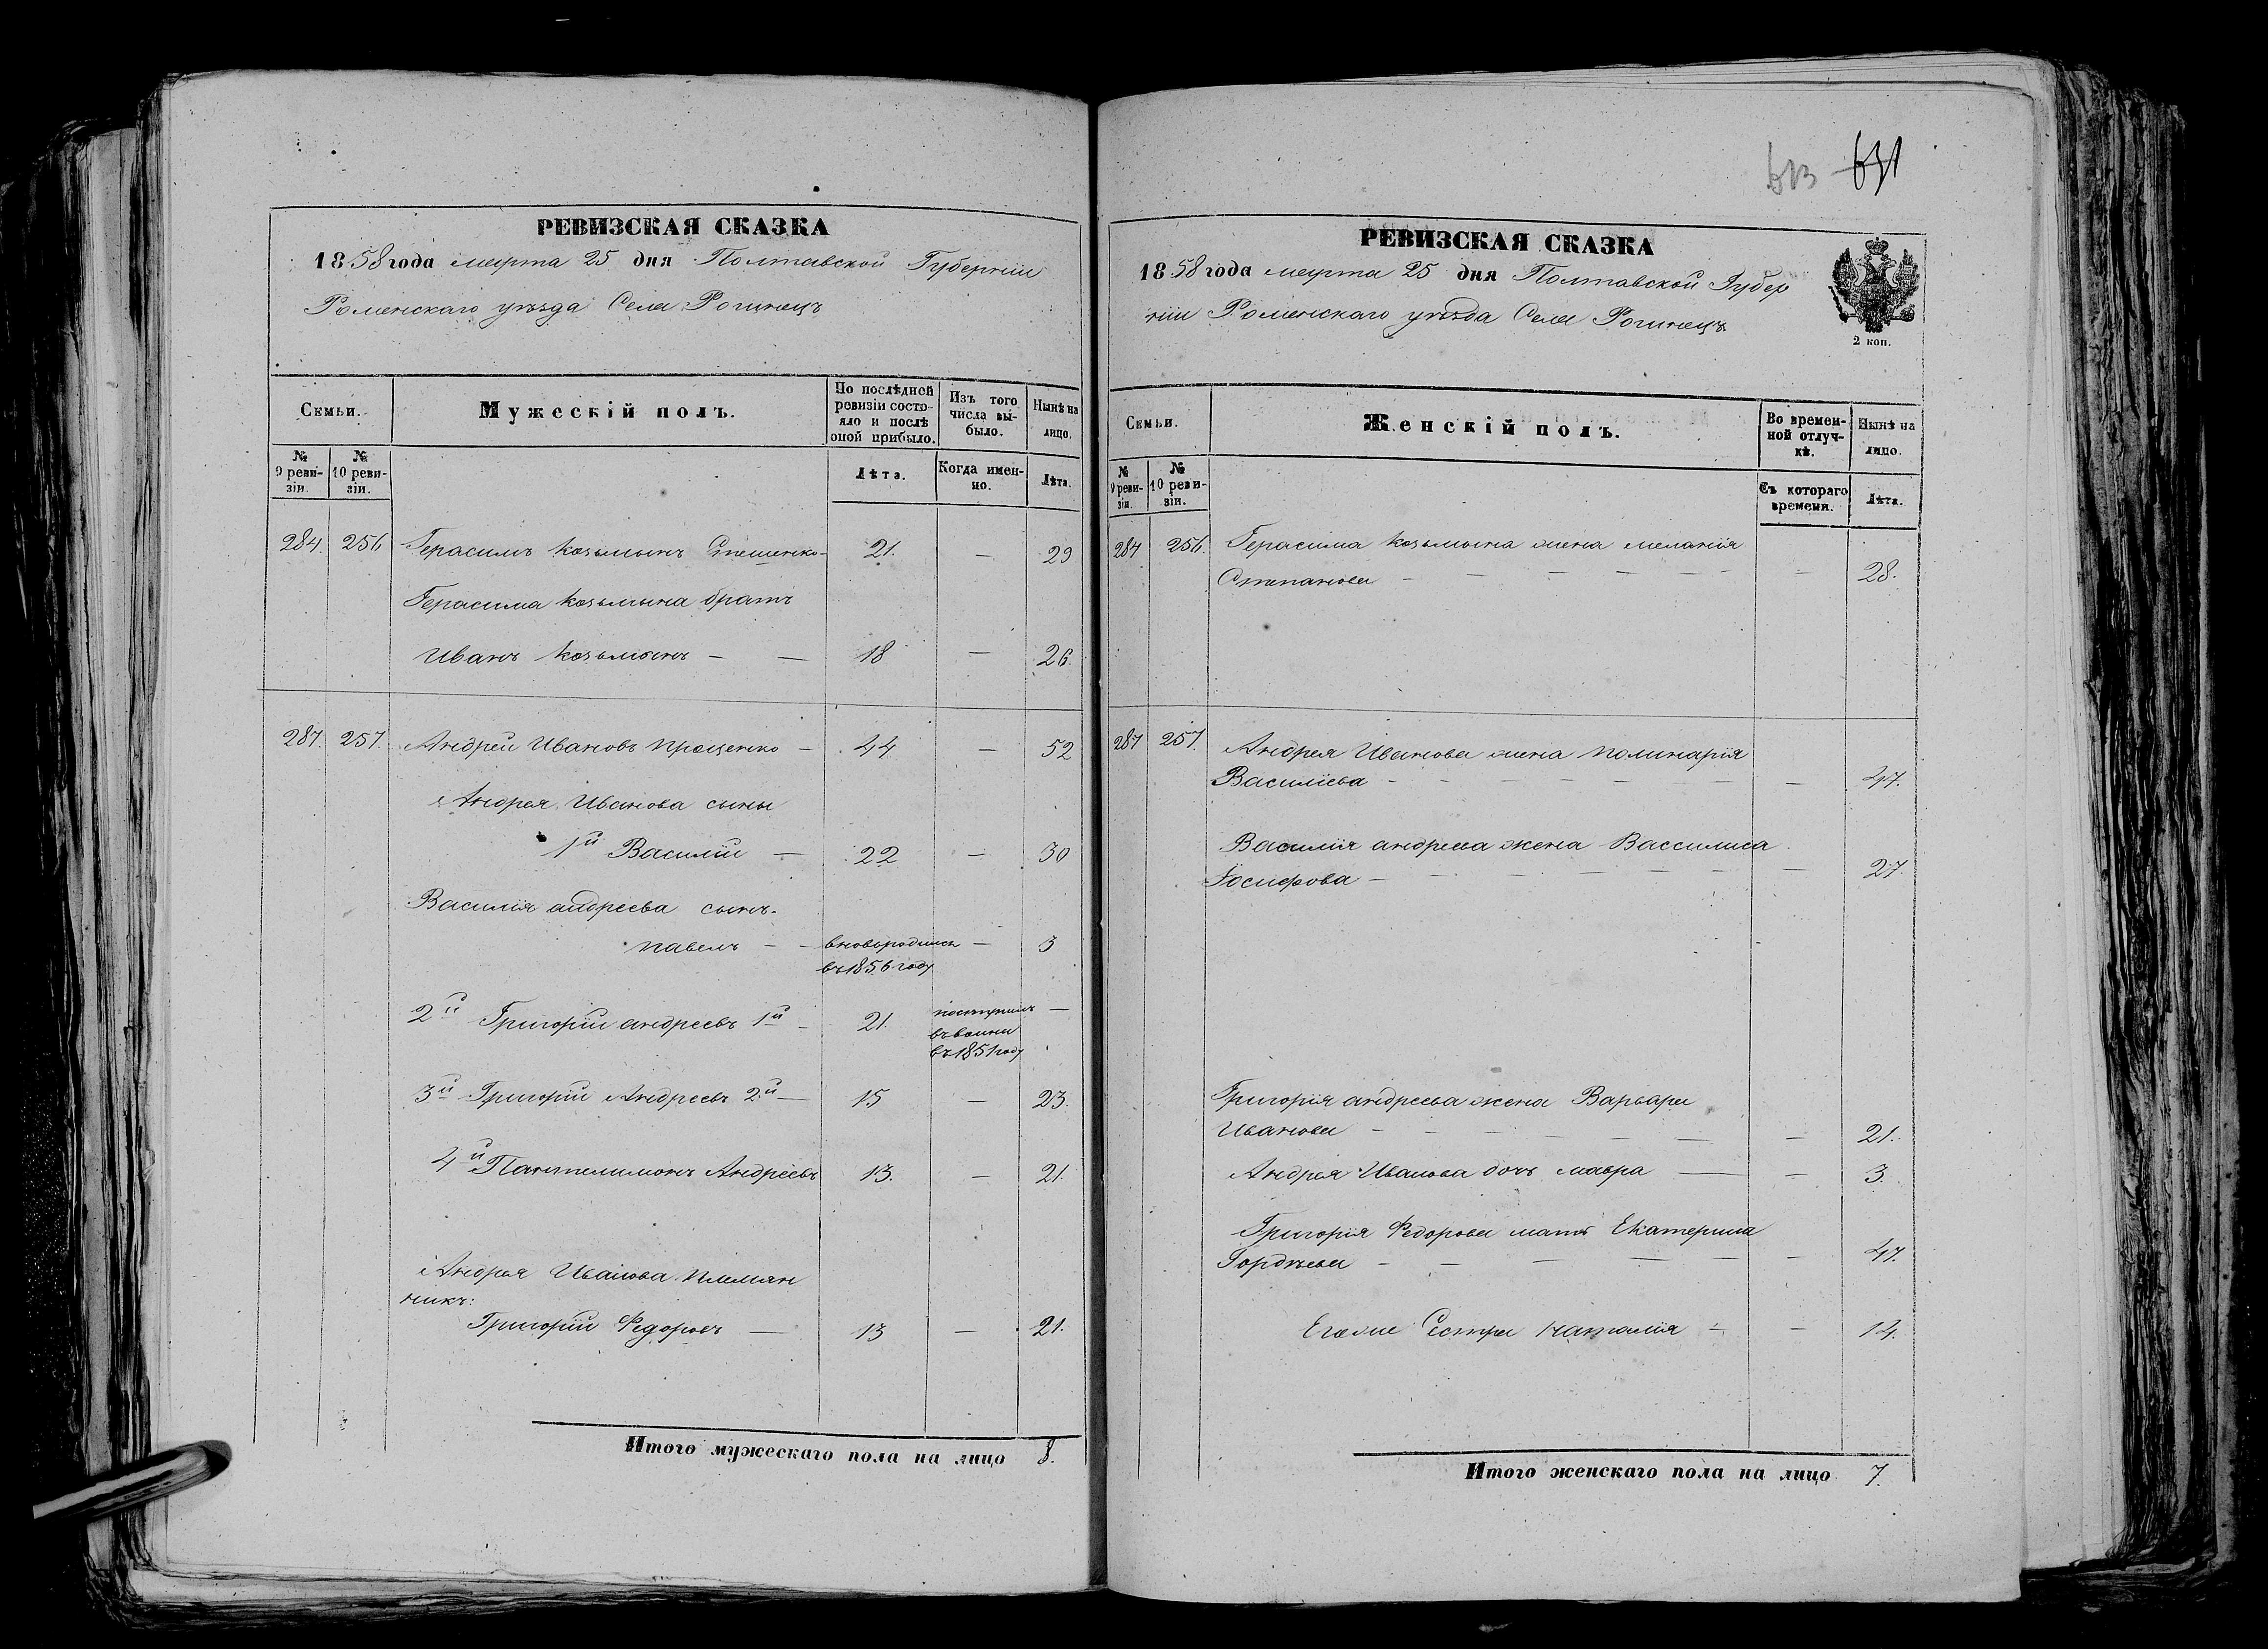 РЕВИЗСКАЯ СКАЗКА
1858 года марта 25 дня Полтавской Губернии
Роменскаго уѣзда Села Рогинецъ
Семьи.
Мужескій полъ.
По послѣдней ревизіи состояло и послѣ оной прибыло.
Изъ того числа выбыло.
Нынѣ на лицо.
№ 9 ревизіи.
№ 10 ревизіи.
Лѣта.
Когда именно.
Лѣта.
284. 256 Герасимъ Козьминъ Стешенко - 21. — 29
Герасима Козьмина братъ
Иванъ Козьминъ — — 18 — 26.
287. 257. Андрей Ивановъ Прощенко — 44 — 52
Андрея Иванова сыны
1й Василій — 22 — 30
Василія андреева сынъ.
павелъ - - вновьродился — 3
въ 1856 году
2й Григорій андреевъ 1й - 21. поступилъ —
въ 1851 году
3й Григорій Андреевъ 2й — 15 — 23.
4й Пантелимонъ Андреевъ 13. — 21.
Андрея Иванова племян
никъ:
Григорій Федоровъ — 13 — 21.
Итого мужескаго пола на лицо 8.
613 631
РЕВИЗСКАЯ СКАЗКА
1858 года марта 25 дня Полтавской Губер
ніи Роменскаго уѣзда Села Рогинецъ
2 коп.
Семьи.
Женскій полъ.
Во временной отлучкѣ.
Нынѣ на лицо.
№ 9 ревизіи.
№ 10 ревизіи.
Съ котораго времени.
Лѣта.
284 256. Герасима Козьмина жена меланія
Степанова — — — — — — — 28.
287 257. Андрея Иванова жена полинарія
Василіева - - - - - - — 47.
Василія андреева жена Вассилиса
Іосифова — - - - - - - — 27.
Григорія андреева жена Варвара
Иванова — - - - - - — — 21.
Андрея Иванова дочь мавра — — 3.
Григорія Федорова мать Екатерина
Гордѣева - — — — — — 47.
Егоже Сестра наталія - — 14.
Итого женскаго пола на лицо 7.